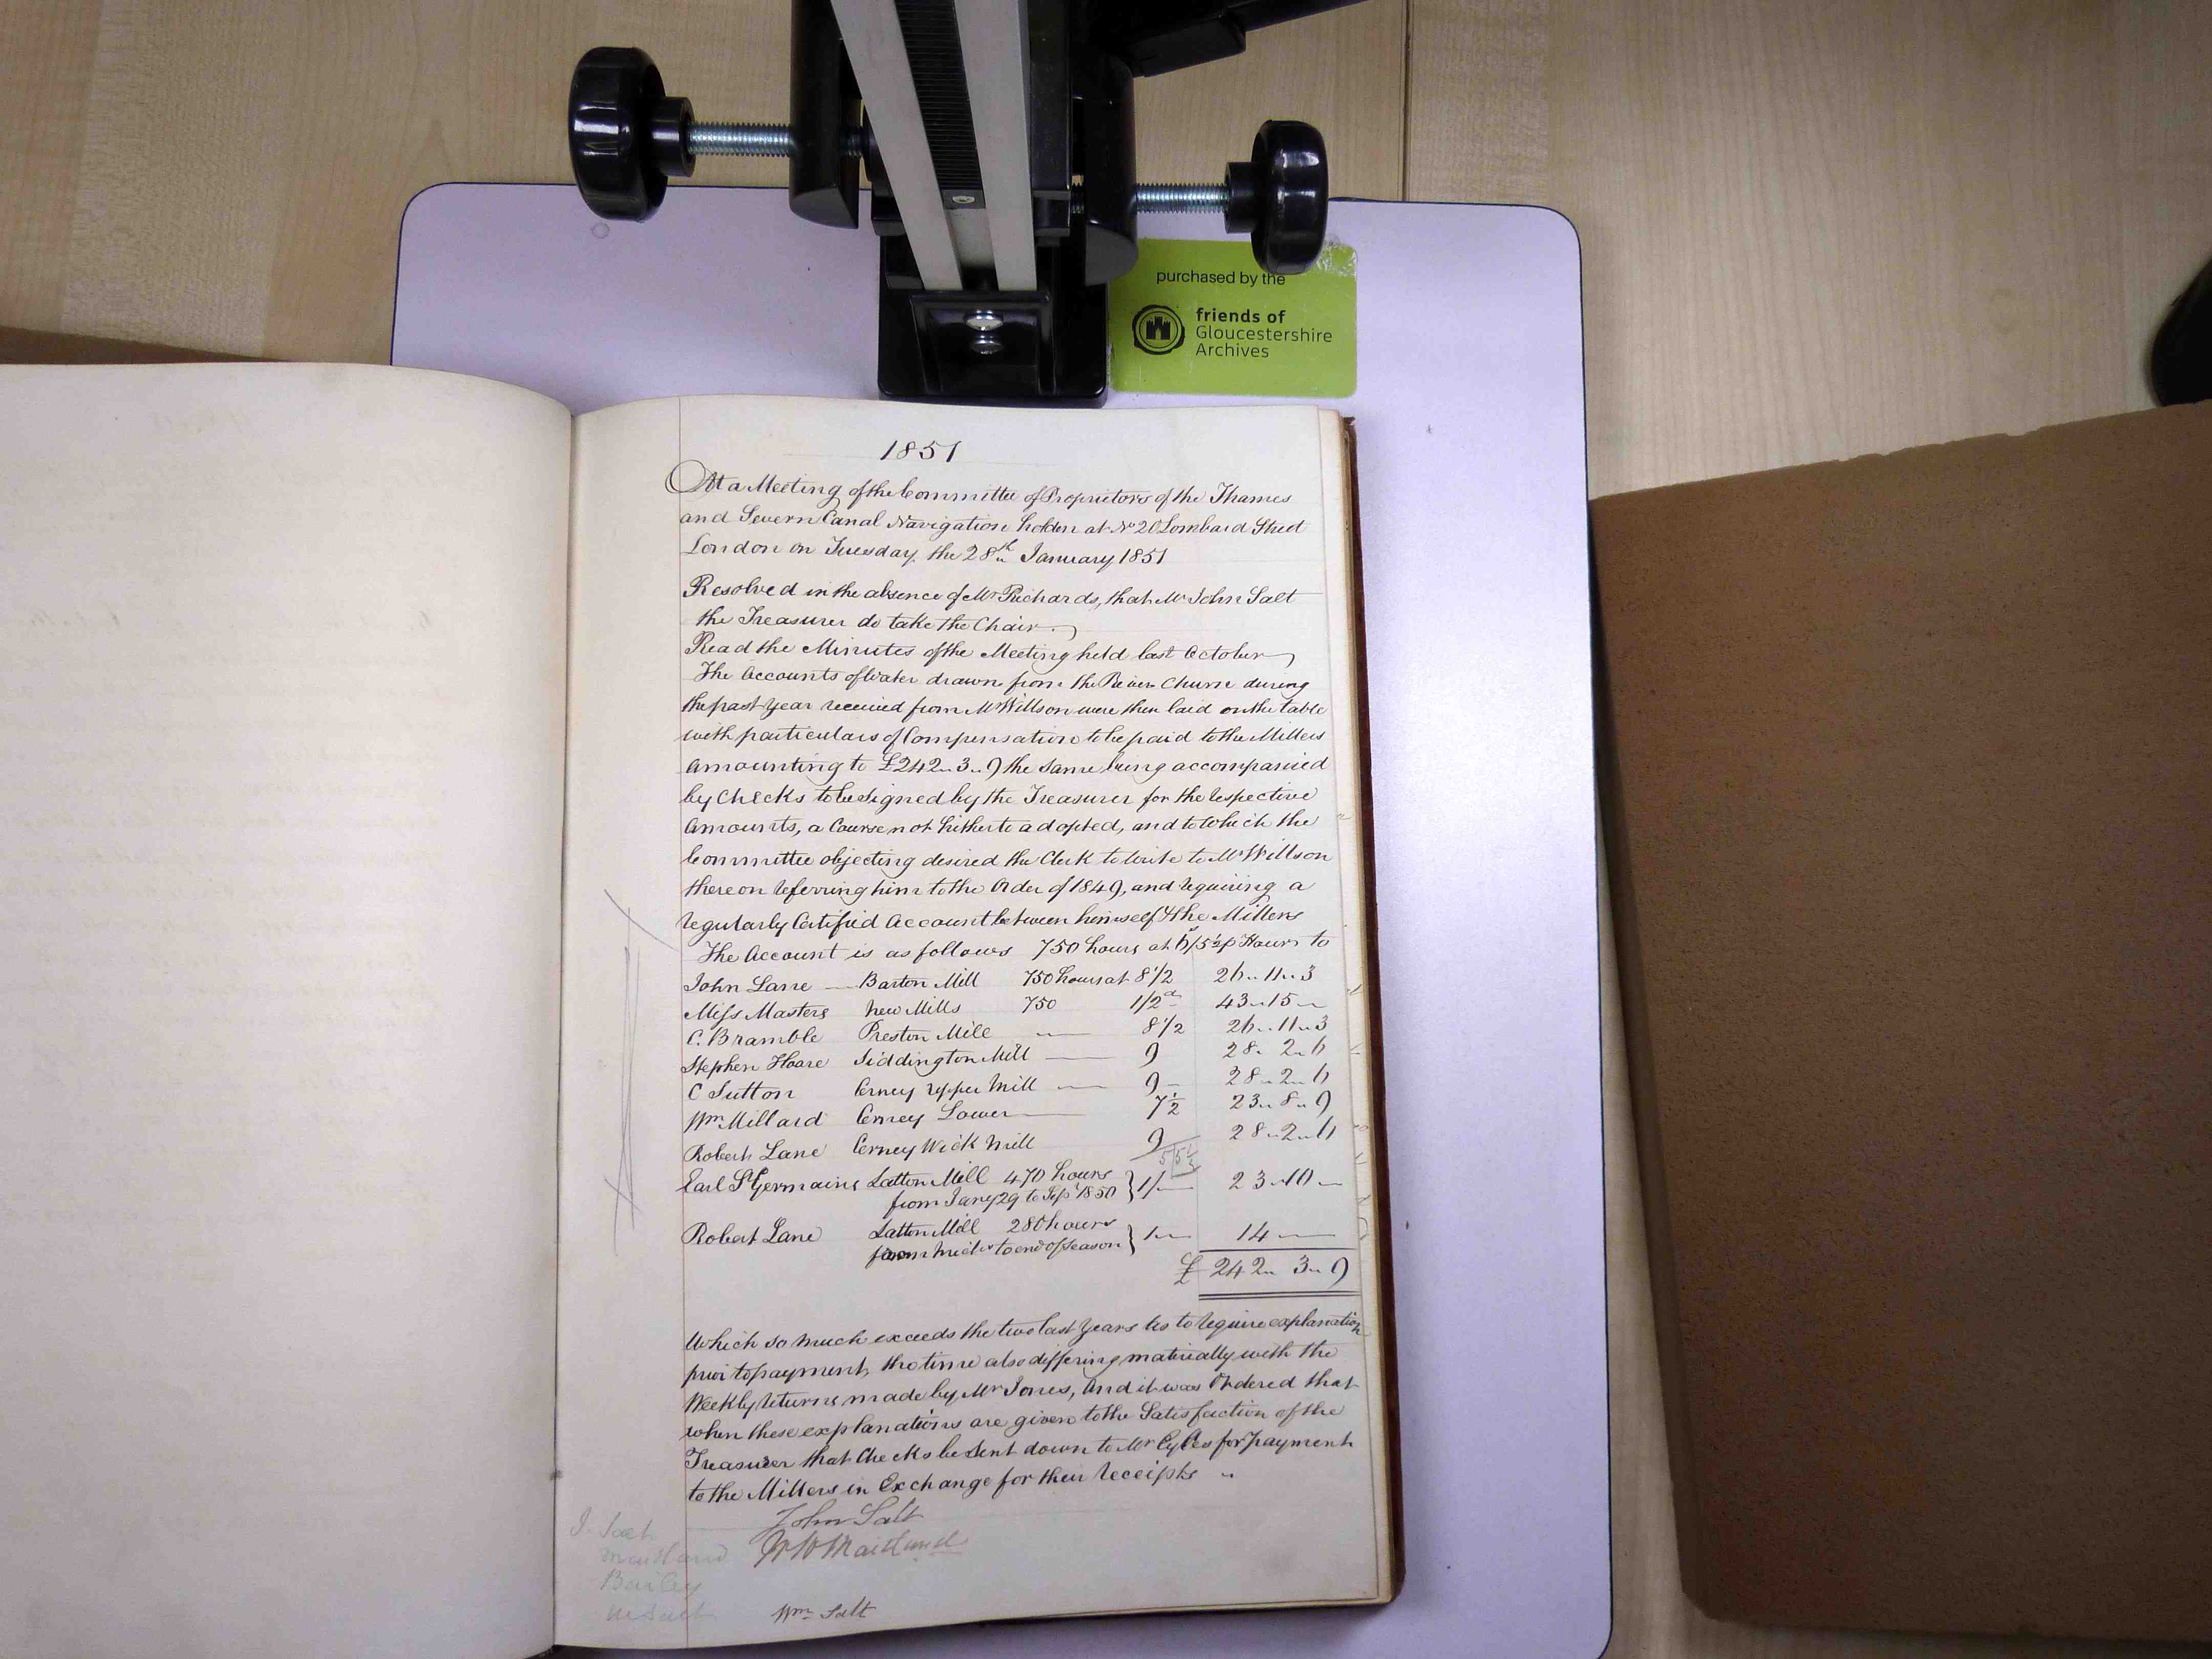 purchased by the
friends of
Gloucestershire
Archives
1851
At a Meeting of the Committee of Proprietors of the Thames
and Severn Canal Navigation holden at No 20 Lombard Street
London on Tuesday the 28th January 1851
Resolved in the absence of Mr Richards, that Mr John Salt
the Treasurer do take the Chair.
Read the Minutes of the Meeting held last October
The Accounts of Water drawn from the River Churn during
the past Year received from Mr Willson were then laid on the table
with particulars of Compensation to be paid to the Millers
amounting to £242 " 3 " 9 the same being accompanied
by Checks to be signed by the Treasurer for the respective
Amounts, a Course not hitherto adopted, and to which the
Committee objecting desired the Clerk to write to Mr Willson
thereon referring him to the Order of 1849, and requiring a
regularly Certified Account between himself & the Millers
The Account is as follows 750 hours at 6/5½ p Hour to
John Lane — Barton Mill 750 hours at 8 1/2 26 " 11 " 3
Miss Masters New Mills 750 1/2d 43 " 15 "
C. Bramble Preston Mill — 8 1/2 26 " 11 " 3
Stephen Hoare Siddington Mill — 9 28 " 2 " 6
C Sutton Cerney Upper Mill — 9 — 28 " 2 " 6
Wm Millard Cerney Lower — 7½ 23 " 8 " 9
Robert Lane Cerney Wick Mill 9 28 " 2 " 6
Earl St Germains Latton Mill 470 hours } 1/— 23 " 10 "
from Jany 29 to Sepr 1850
Robert Lane Latton Mill 280 hours } 1 — 14 —
from Michs to end of Season
£ 242 " 3 " 9
Which so much exceeds the two last Years as to require explanation
prior to payment, the time also differing materially with the
Weekly returns made by Mr Jones, And it was Ordered that
when these explanations are given to the Satisfaction of the
Treasurer that Checks be sent down to Mr for payment
to the Millers in Exchange for their receipts "
John Salt
J. Salt
Maitland
Maitland
Bailey
W Salt
Wm Salt